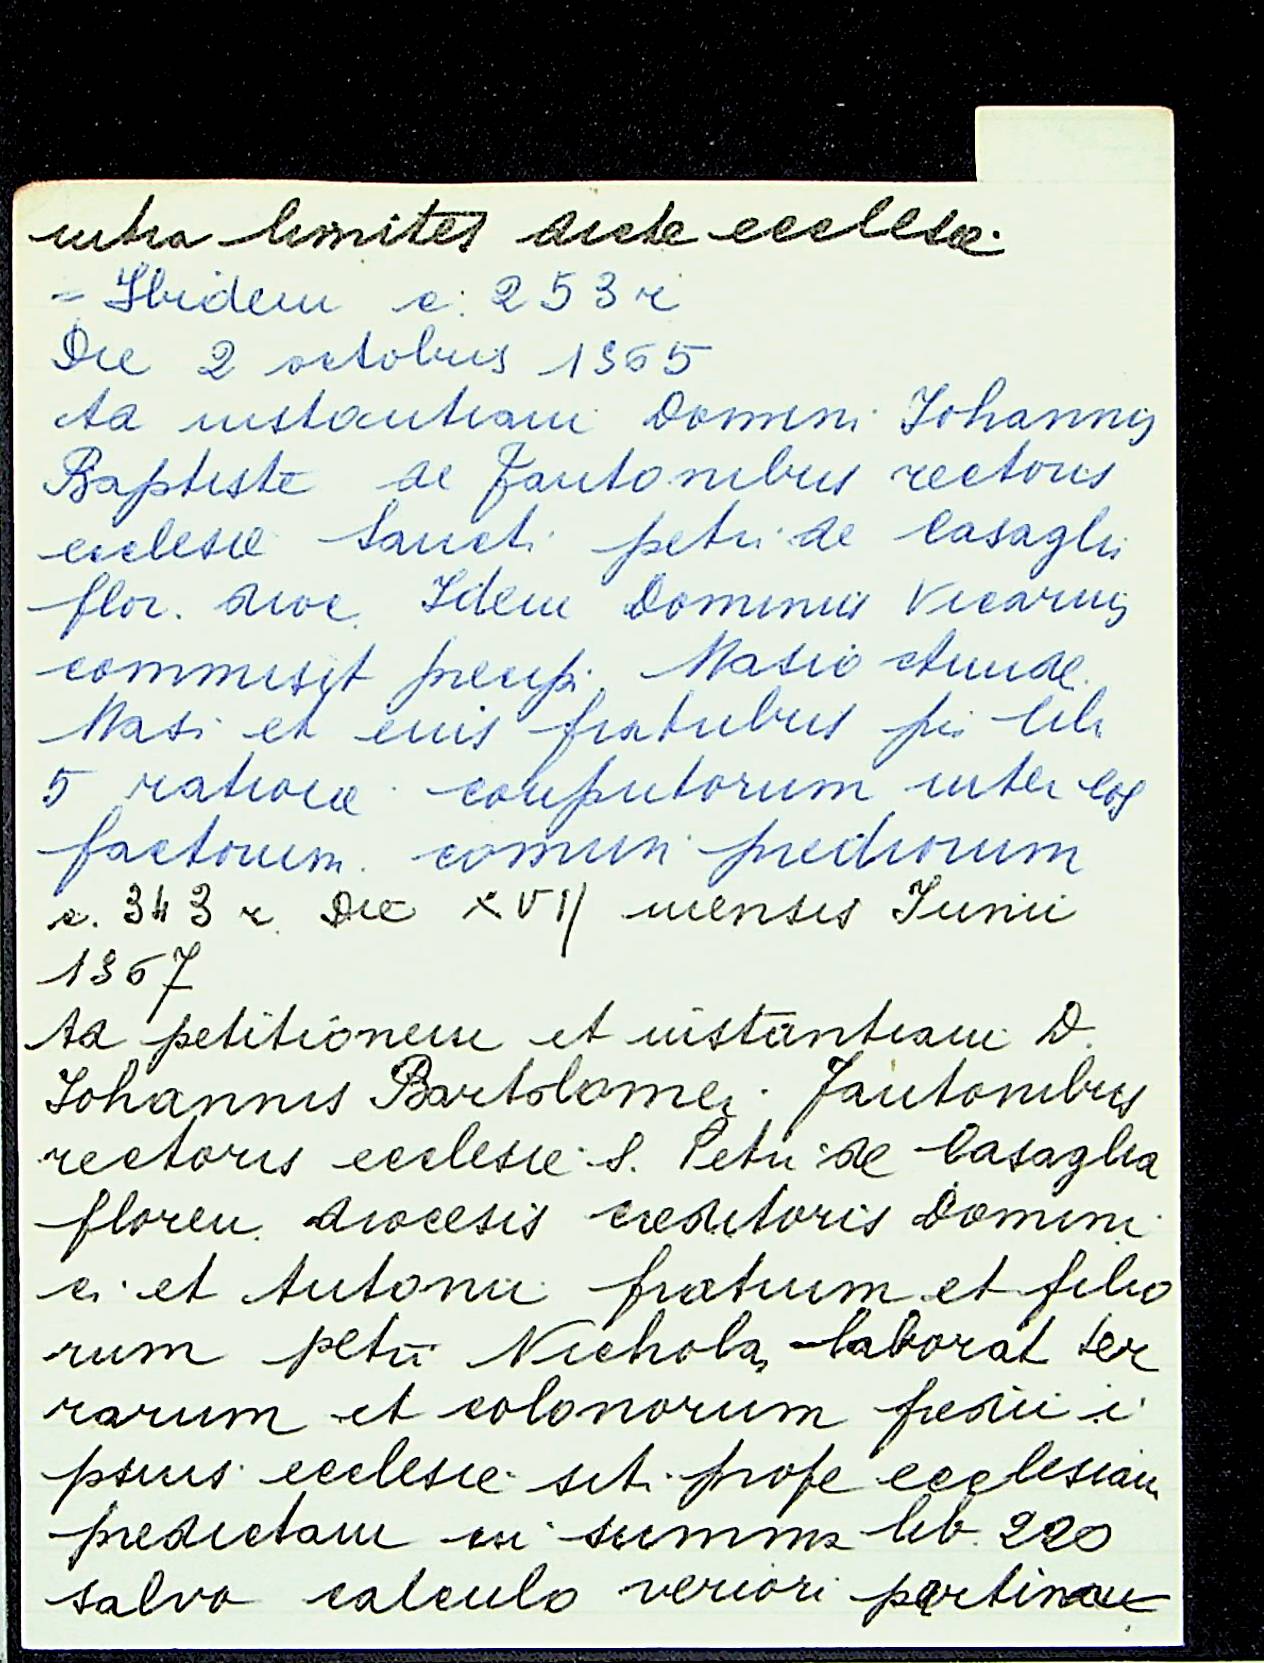 intra limites dicte ecclesie.
= Ibidem c. 253 r
Die 2 octobris 1565
Ad instantiam Domini Johannis
Baptiste de Fantonibus rectoris
ecclesie Sancti petri de Casagli
flor. dioc. Idem Dominus Vicarius
commisit precipi Masio
Masi et eius fratribus pii lib
5 ratione computorum inter eos
factorum. comuni prediorum
c. 343 r. Die XVII mensis Junii
1567
Ad petitionem et instantiam D.
Johannis Bartolomei Fantonibus
rectoris ecclesie S. Petri de Casaglia
floren. diocesis creditoris Domini
ci et Antonii fratrum et filio
rum petri Nichola, laborat ter
rarum et colonorum predii i
psius ecclesie siti prope ecclesiam
predictam in summa lib. 220
salvo calculo veriori